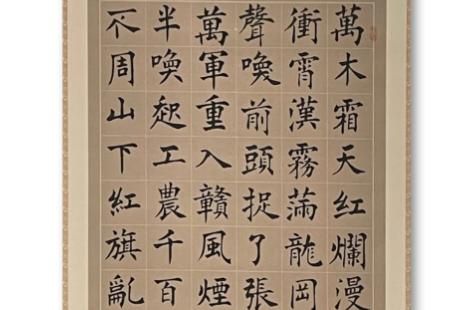 萬木霜天紅爛漫
衝霄漢霧滿龍岡
聲喚前頭捉了張
萬軍重入贛風煙
半喚起工農千百
不周山下紅旗亂